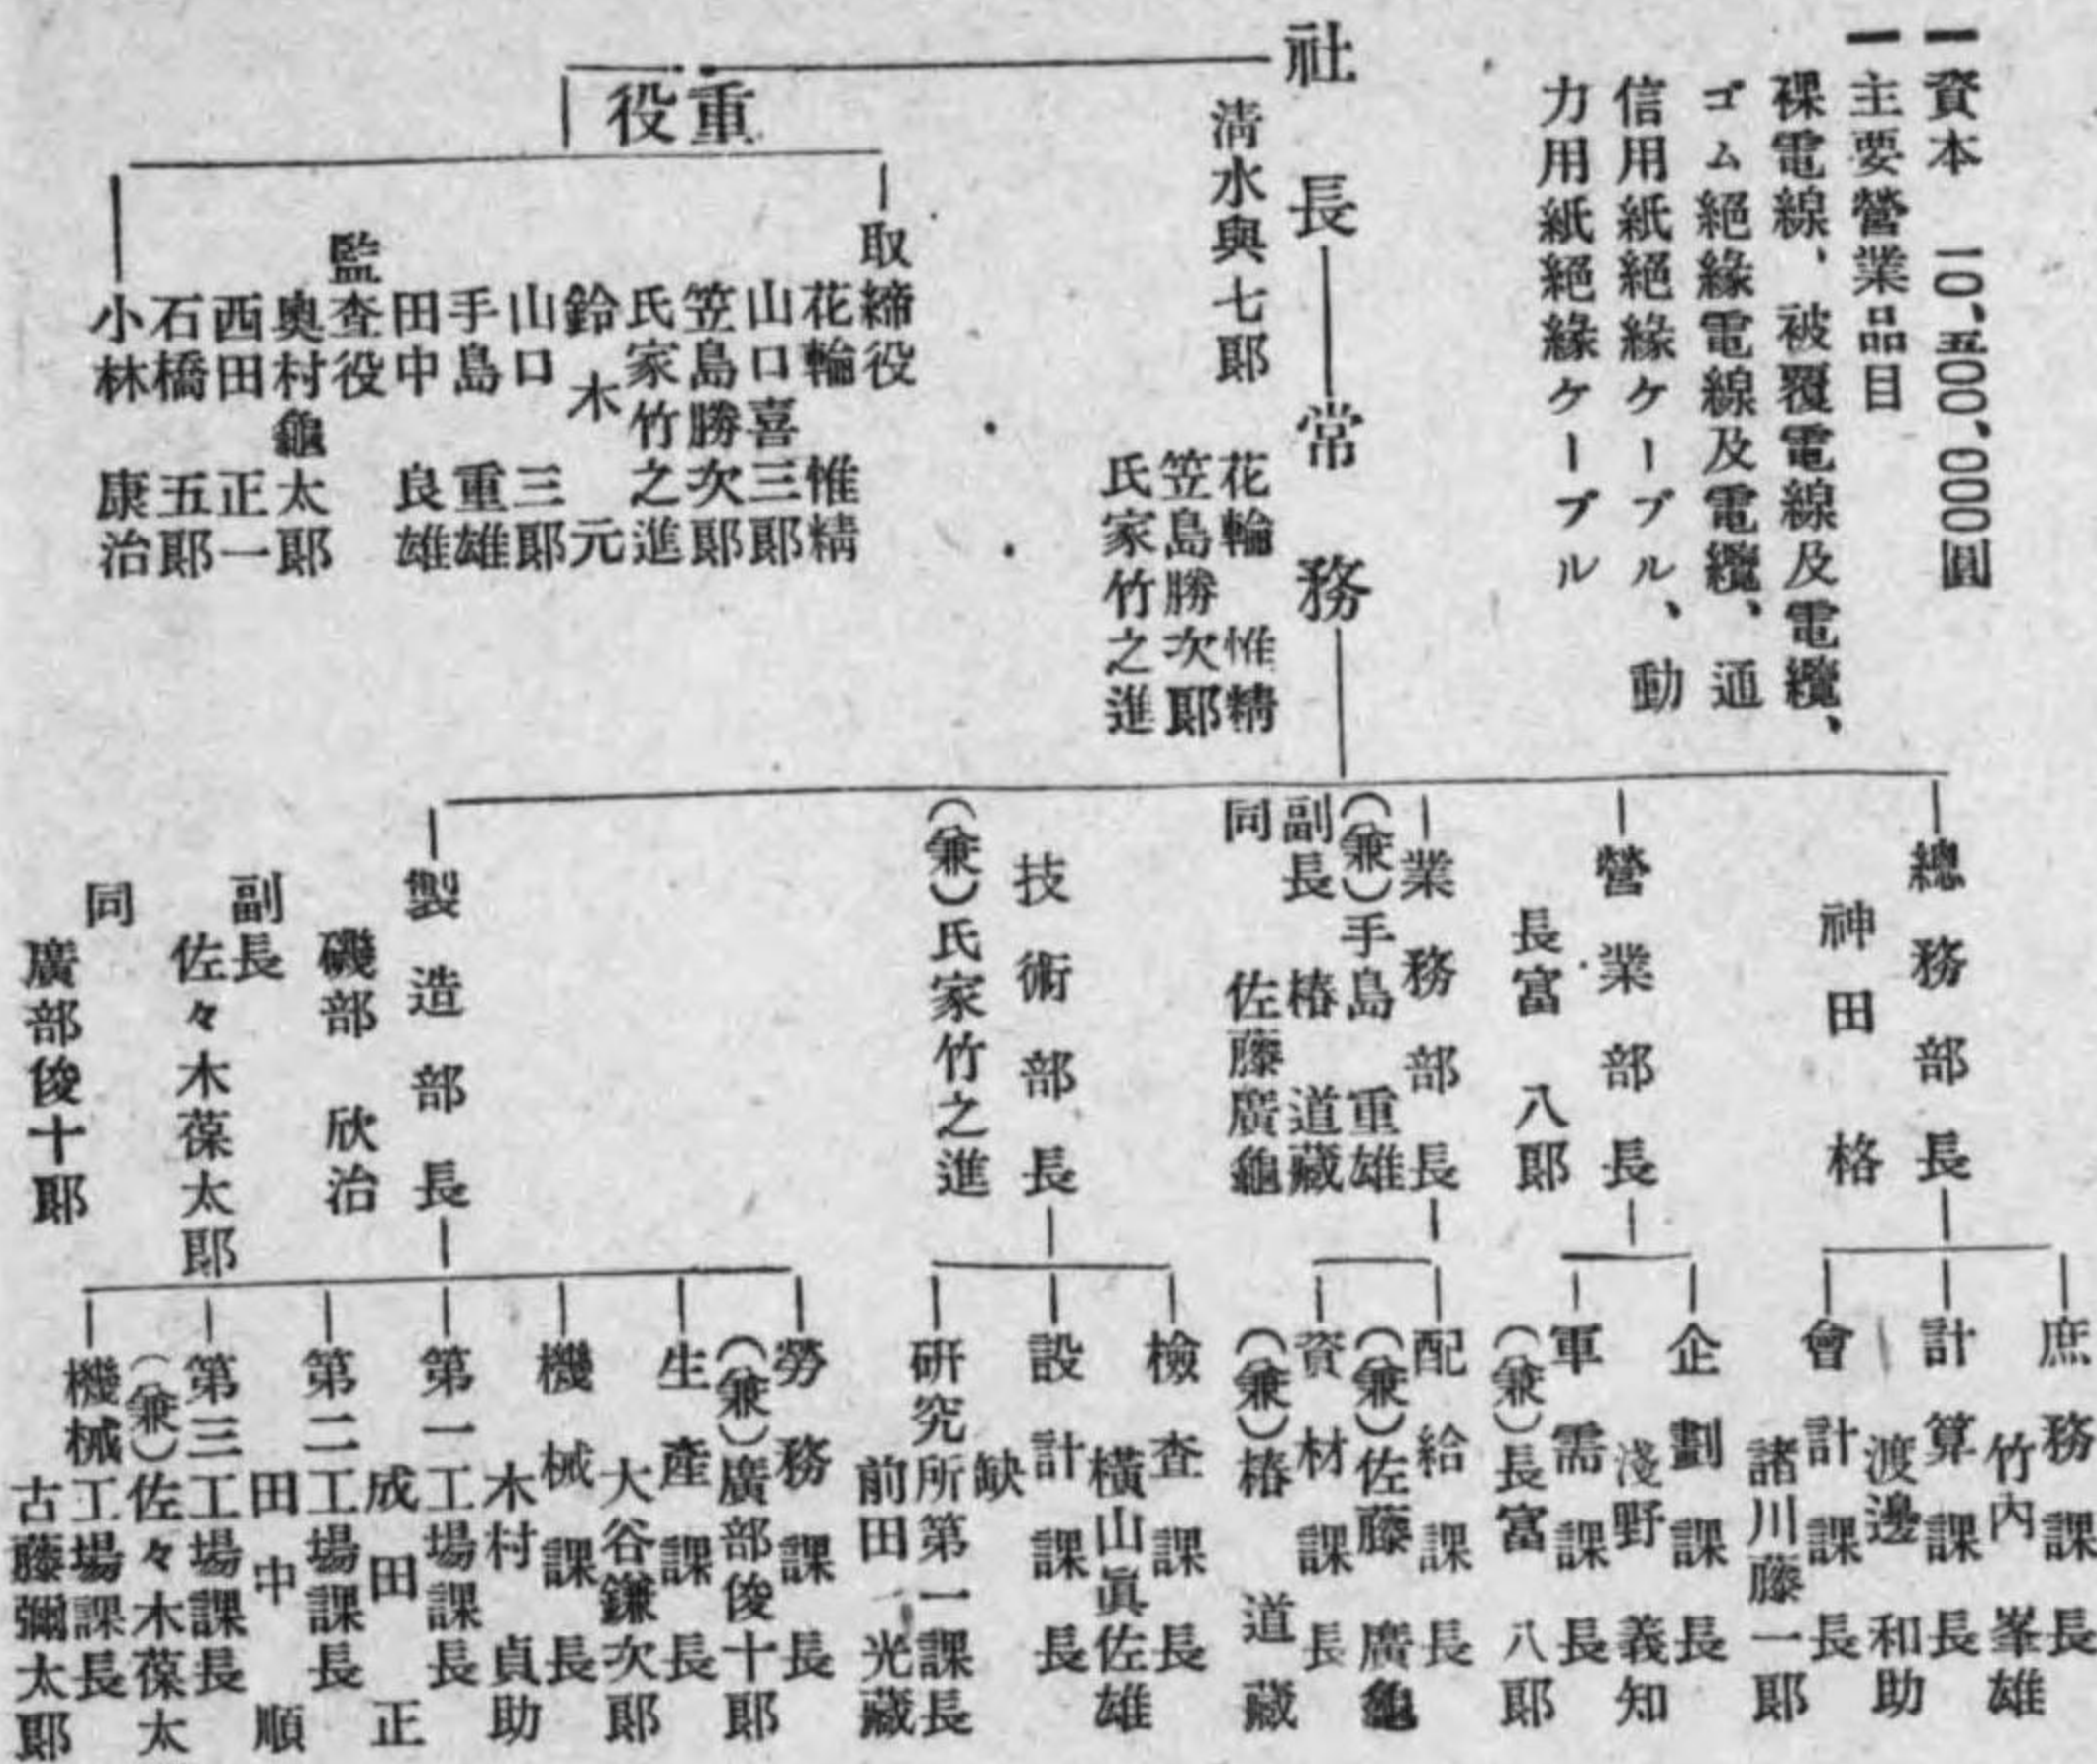 一資本　一〇、五〇〇、〇〇〇圓
一主要營業品目
裸電線、被覆電線及電纜、
ゴム絕緣電線及電纜、通
信用紙絕緣ケーブル、動
力用紙絕緣ケーブル
社長
淸水與七郞
常務
花輪　惟精
笠島勝次郞
氏家竹之進
重役
取締役
花輪　惟精
山口喜三郞
笠島勝次郞
氏家竹之進
鈴木　元
山口　三郞
手島　重雄
田中　良雄
監査役
奧村龜太郞
西田　正一
石橋　五郞
小林　康治
總務部長
神田　格
庶務課長
竹內　峯雄
計算課長
渡邊　和助
會計課長
諸川藤一郞
營業部長
長富　八郞
企劃課長
淺野　義知
軍需課長
（兼）長富　八郞
業務部長
（兼）手島　重雄
副長　椿　道藏
同　佐藤廣龜
配給課長
（兼）佐藤　廣龜
資材課長
（兼）椿　道藏
技術部長
（兼）氏家竹之進
檢查課長
橫山眞佐雄
設計課長
缺
硏究所第一課長
前田　光藏
製造部長
磯部　欣治
副長
佐々木葆太郞
同
廣部俊十郞
勞務課長
（兼）廣部俊十郞
生產課長
大谷鎌次郞
機械課長
木村　貞助
第一工場課長
成田　正
第二工場課長
田中　順
第三工場課長
（兼）佐々木葆太
機械工場課長
古藤彌太郞